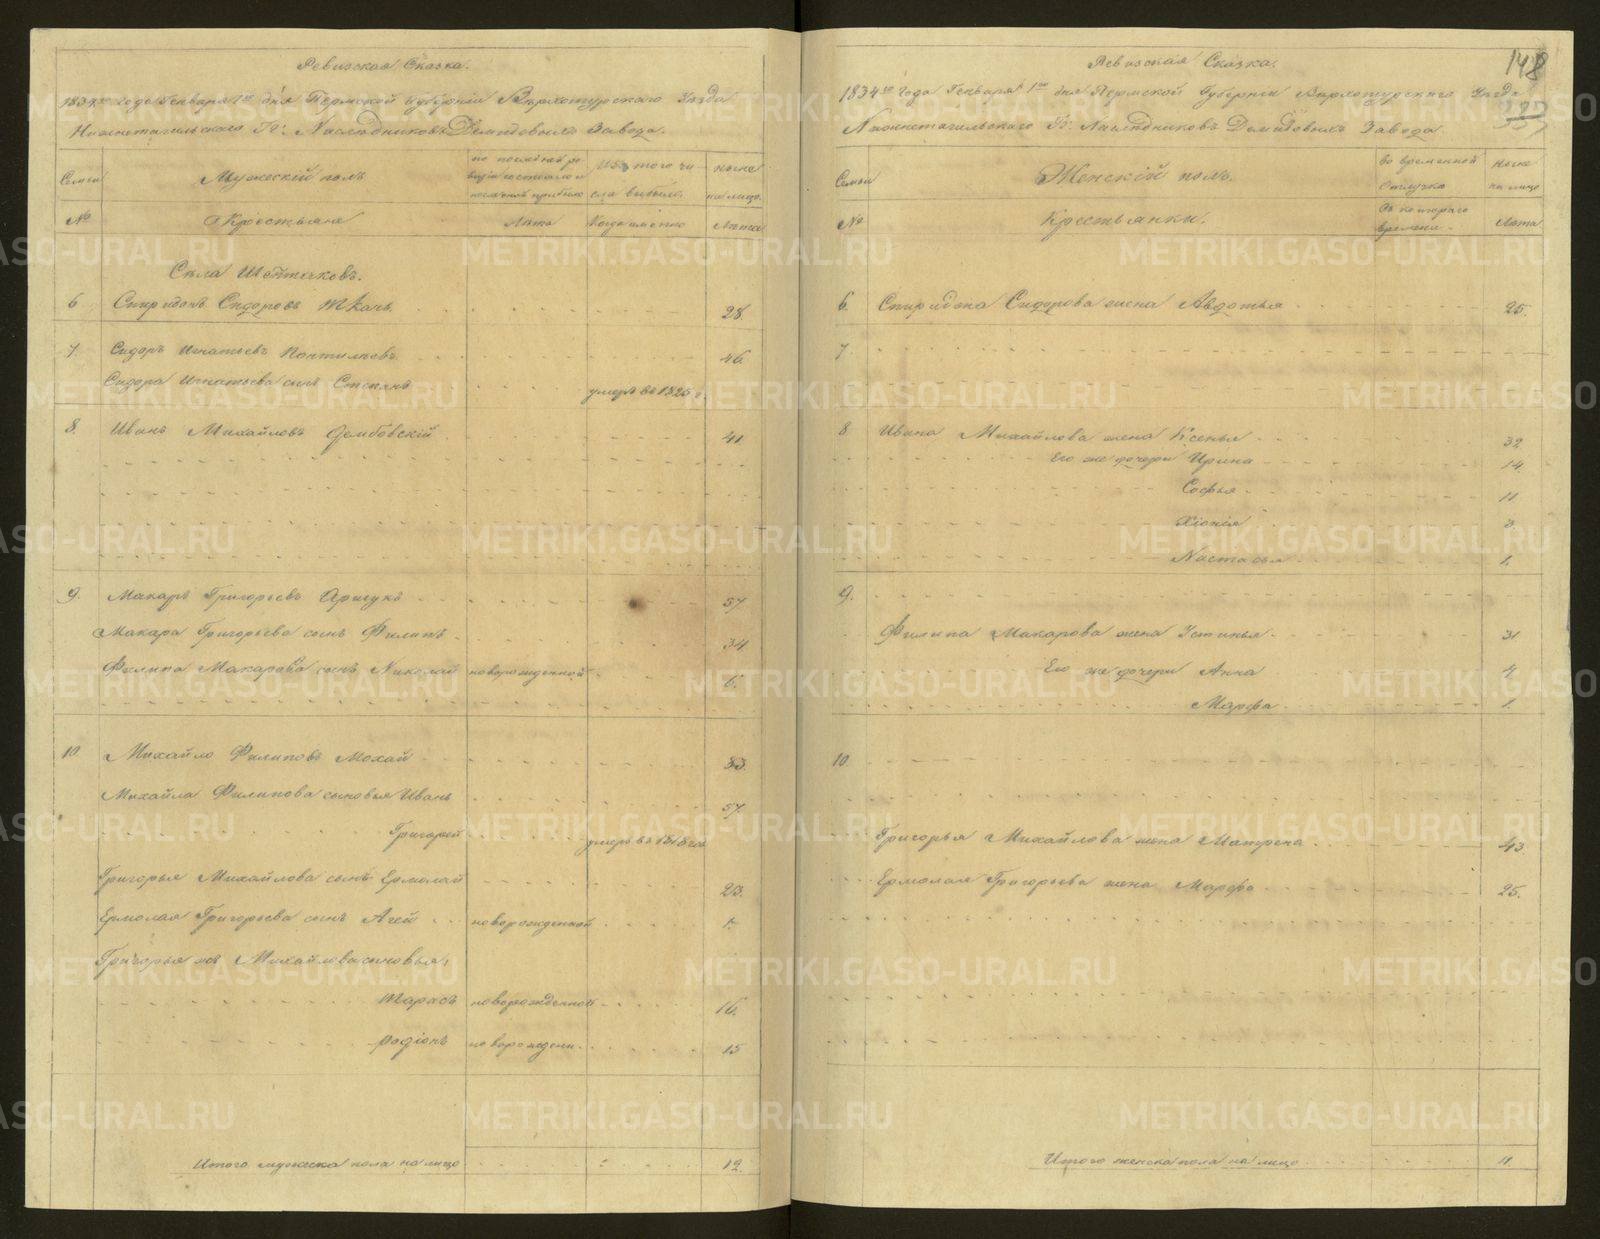 Ревизская Сказка.
1834го года Генваря 1го дня Пермской Губернiи Верхотурскаго Уезда
Нижнетагильскаго Гг: Наследниковъ Демидовыхъ Завода.
Семьи
Мужескiй полъ
по последней ре-
визiи состояло и
после оной прибыло
Изъ того чи-
сла выбыло.
ныне
на лицо.
№
Крестьяне
Лета
Когда именно
Лета
Села Шейтаковъ.
6 Спиридонъ Сидоровъ Ткачь. 28.
7 Сидоръ Игнатьевъ 46.
Сидора Игнатьева сынъ Степанъ умеръ въ 1825 г.
8. Иванъ Михайловъ Домбовскiй 41
9. Макаръ Григорьевъ 57
Макара Григорьева сынъ Филипъ 34
Филипа Макарова сынъ Николай новорожденной 6.
10 Михайло Филиповъ Мохай 83.
Михайла Филипова сыновья Иванъ 57
Григорей умеръ въ 1818 год
Григорья Михайлова сынъ Ермолай 23.
Ермолая Григорьева сынъ Агей новорожденной 1.
Григорья же Михайлова сыновья,
Тарасъ новорожденной 16.
Родiонъ новорожден. 15
Итого мужеска пола на лицо 12.
148
Ревизская Сказка.
1834го года Генваря 1го дня Пермской Губернiи Верхотурскаго Уезда
Нижнетагильскаго Гг: Наследниковъ Демидовыхъ Завода.
Семьи
Женскiй полъ.
во временной
отлучке
ныне
на лицо
№
Крестьянки.
съ котораго
времени.
Лета
6. Спиридона Сидорова жена Авдотья 25.
7
8 Ивана Михайлова жена Ксенья 32
Его же дочери Ирина 14.
Софья 11
Хiонiя 3.
Настасья 1.
9.
Филипа Макарова жена Устинья 31
Его же дочери Анна 4
Марфа 1.
10
Григорья Михайлова жена Матрена 43.
Ермолая Григорьева жена Марфа 25.
Итого женска пола на лицо 11.
METRIKI.GASO-URAL.RU